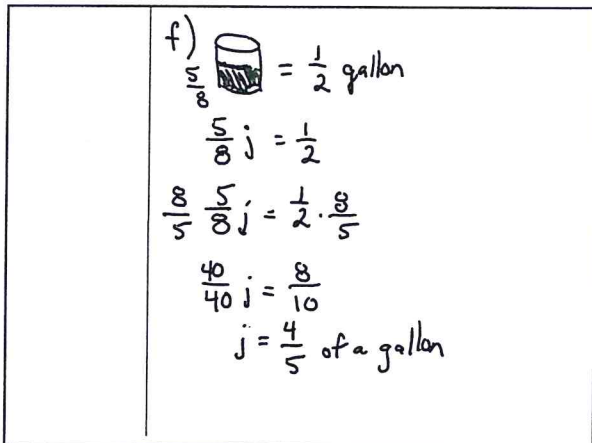 f)
5/8 = 1/2 gallon
5/8 j = 1/2
8/5 5/8 j = 1/2 · 8/5
40/40 j = 8/10
j = 4/5 of a gallon